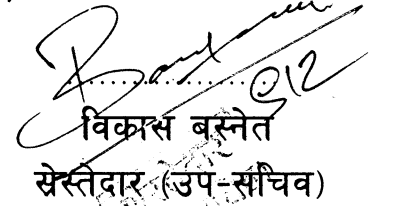 विकास बस्नेत
स्रेस्तेदार (उप-सचिव)